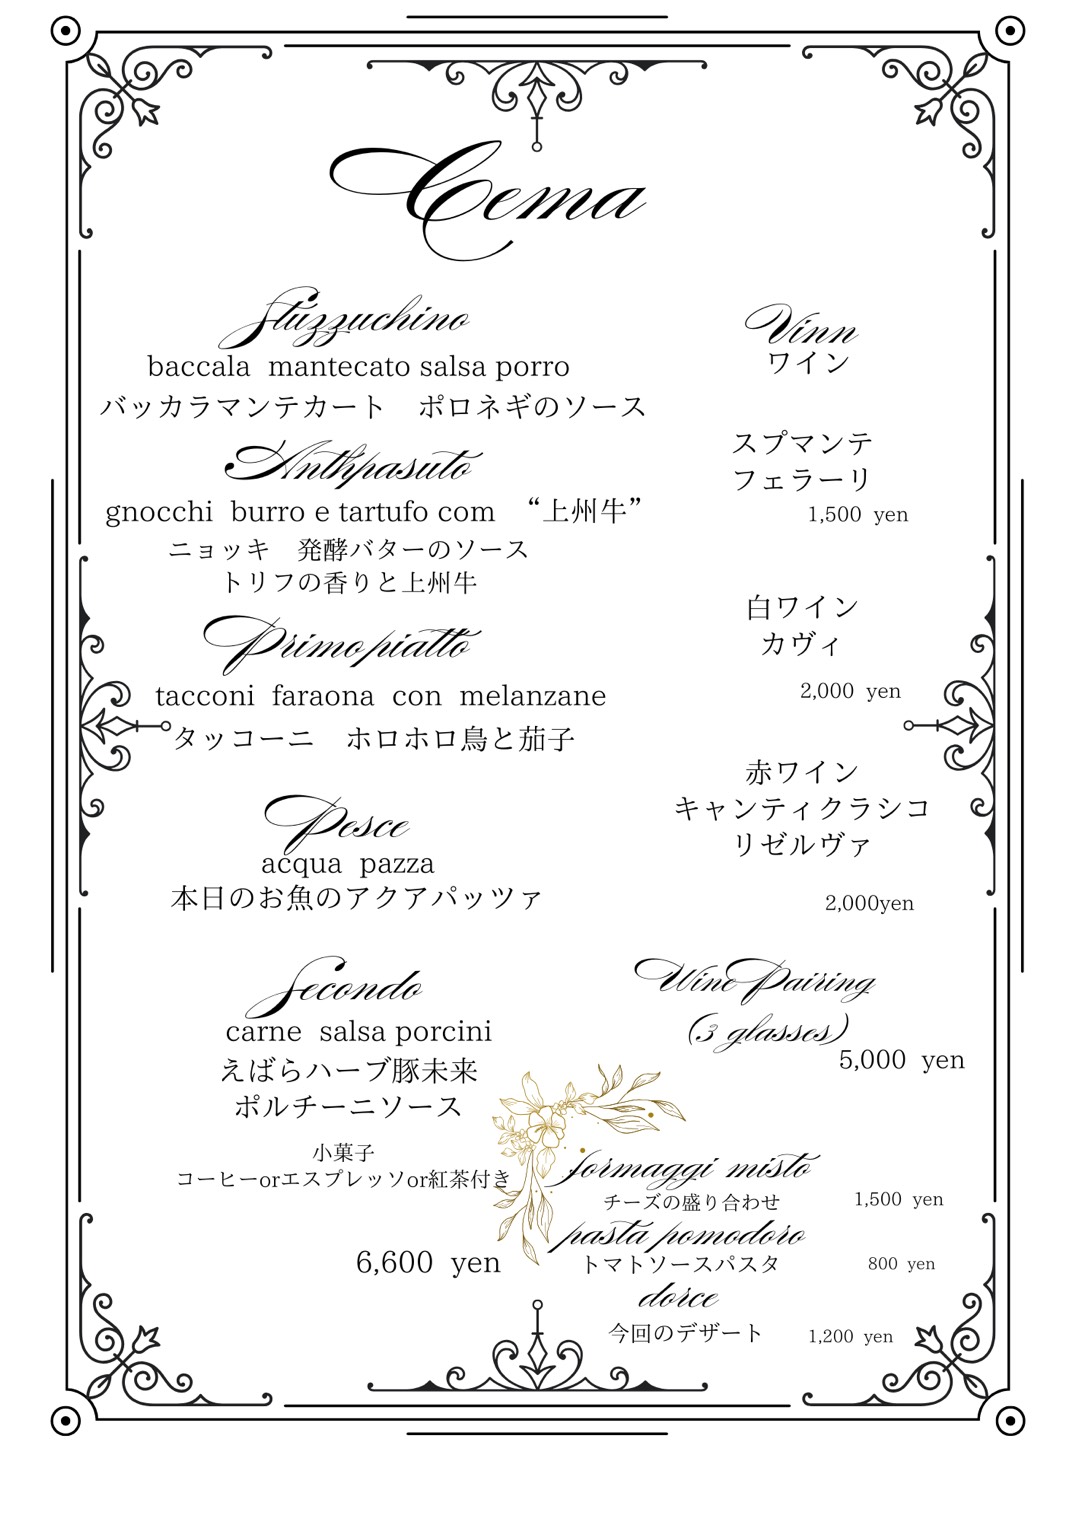 Cema
Stuzzuchino
baccala mantecato salsa porro
バッカラマンテカート　ポロネギのソース
Anthpasuto
gnocchi burro e tartufo com “上州牛”
ニョッキ　発酵バターのソース
トリフの香りと上州牛
Primo piatto
tacconi faraona con melanzane
タッコーニ　ホロホロ鳥と茄子
Pesce
acqua pazza
本日のお魚のアクアパッツァ
Secondo
carne salsa porcini
えばらハーブ豚未来
ポルチーニソース
小菓子
コーヒーorエスプレッソor紅茶付き
6,600 yen
Vinn
ワイン
スプマンテ
フェラーリ
1,500 yen
白ワイン
カヴィ
2,000 yen
赤ワイン
キャンティクラシコ
リゼルヴァ
2,000yen
Wine Pairing
(3 glasses)
5,000 yen
formaggi misto
チーズの盛り合わせ 1,500 yen
pasta pomodoro
トマトソースパスタ 800 yen
dorce
今回のデザート 1,200 yen